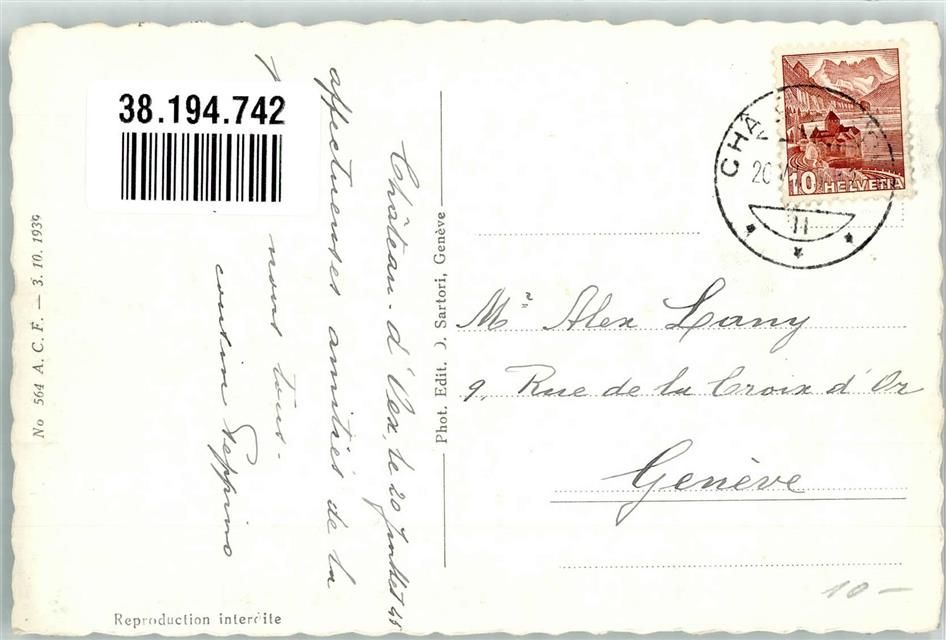 38.194.742
Château-d'Oex, le 20 Juillet 45
affectueuses amitiés de la
nous tous -
cousin Peppino
No 564 A. C. F. — 3. 10. 1939
Reproduction interdite
Phot. Edit. J. Sartori, Genève
CHÂ
20
II
10 HELVETIA
Mr Alex Lany
9, Rue de la Croix d'Or
Genève
10 –